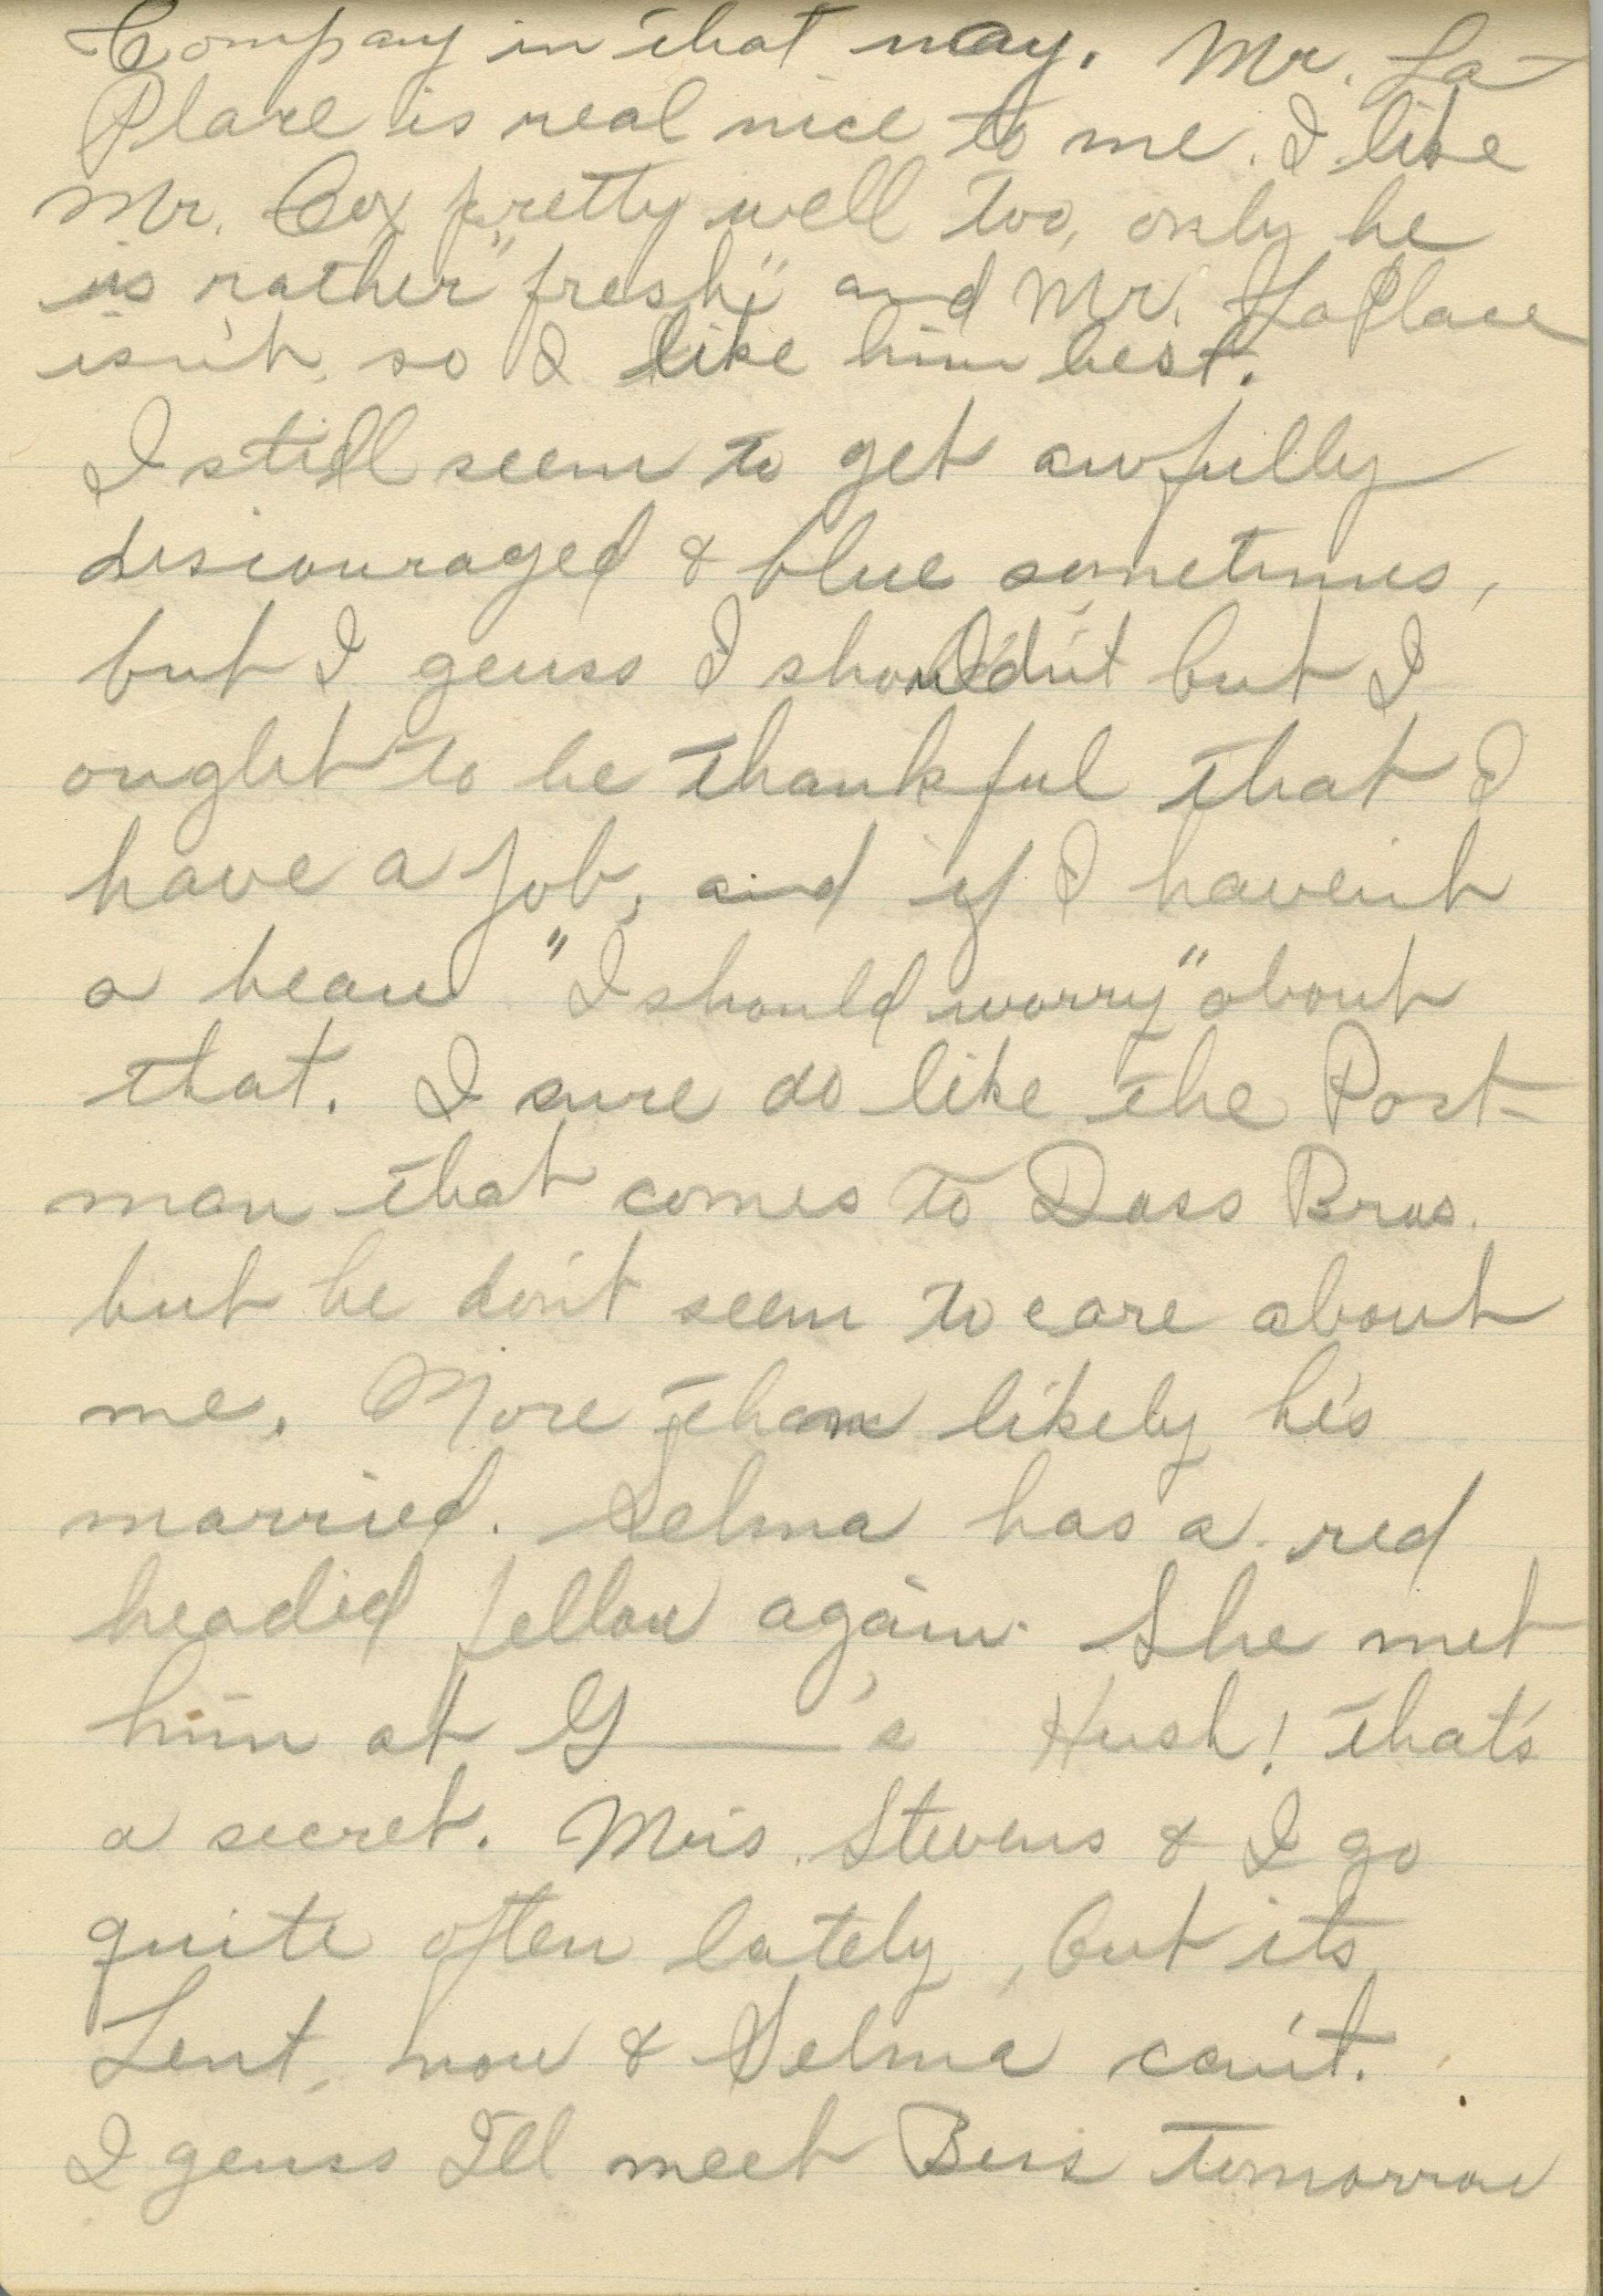 Company in that way. Mr. La-
Place is real nice to me. I like
Mr. Cox pretty well too, only he
is rather "fresh" and Mr. LaPlace
isn't, so I like him best.
I still seem to get awfully
discouraged & blue sometimes,
but I geuss I shouldn't but I
ought to be thankful that I
have a job, and if I haven't
a beau "I should worry" about
that. I sure do like the Post-
man that comes to Dass Bros.
but he don't seem to care about
me. More than likely he's
married. Selma has a red
headed fellow again. She met
him at G———'s Hush! that's
a secret. Mrs. Stevens & I go
quite often lately, but it's
Lent, now & Selma can't.
I geuss I'll meet Bess tomorrow